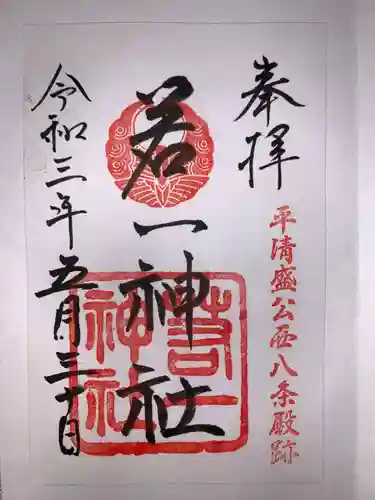 奉拝
平清盛公西八条殿跡
若一神社
若一神社
令和三年五月三十日